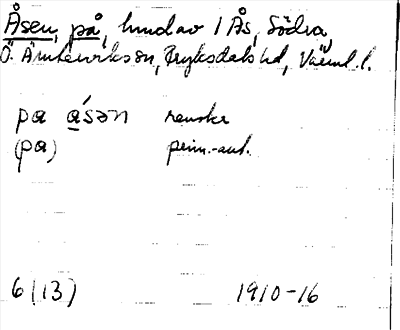 Åsen, på, hmd av 1 Ås, Södra,
Ö. Ämterviks sn, Fryksdals hd, Värml. l.
pa ásən renskr
(pa) prim.-ant.
6 (13) 1910-16